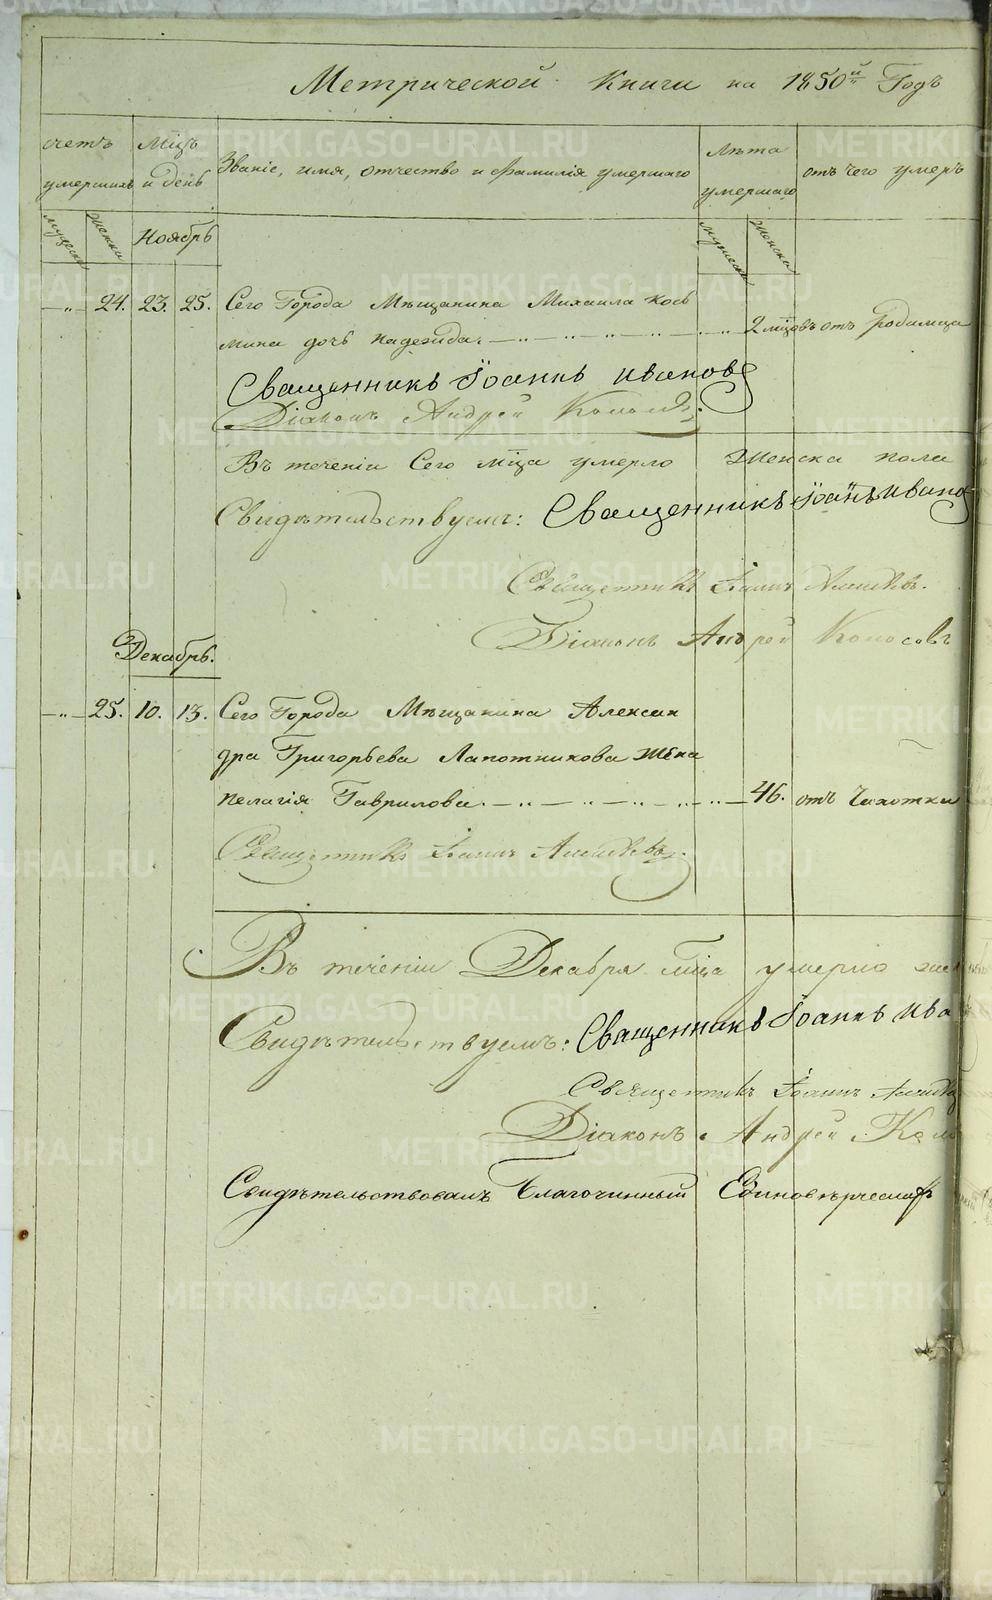 Метрической Книги на 1850й Годъ
счетъ умершихъ
Мцъ и день
Званіе, имя, отчество и фамилія умершаго
Лѣта умершаго
отъ чего умеръ
мужеска
женска
Ноябрь
мужеска
женска
24. 23. 25. Сего Города Мѣщанина Михаила Кось
мина дочь Надежда. 2 мцовъ отъ родимца
Священникъ Іоаннъ Ивановъ
Діаконъ Андрей
Въ теченіи Сего мца умерло Женска пола
Свидѣтельствуемъ: Священникъ Іоаннъ Ивано
Священникъ Іоаннъ
Діаконъ Андрей Колосовъ
Декабрь.
25. 10. 13. Сего Города Мѣщанина Алексан
дра Григорьева Лапотникова жена
Пелагія Гаврилова. 46. отъ Чахотки
Священникъ Іоаннъ
Въ теченіи Декабря мца умерло жен
Свидѣтельствуемъ: Священникъ Іоаннъ Ива
Священникъ Іоаннъ
Діаконъ Андрей Коло
Свидѣтельствовалъ Благочинный Единовѣрчески
METRIKI.GASO-URAL.RU